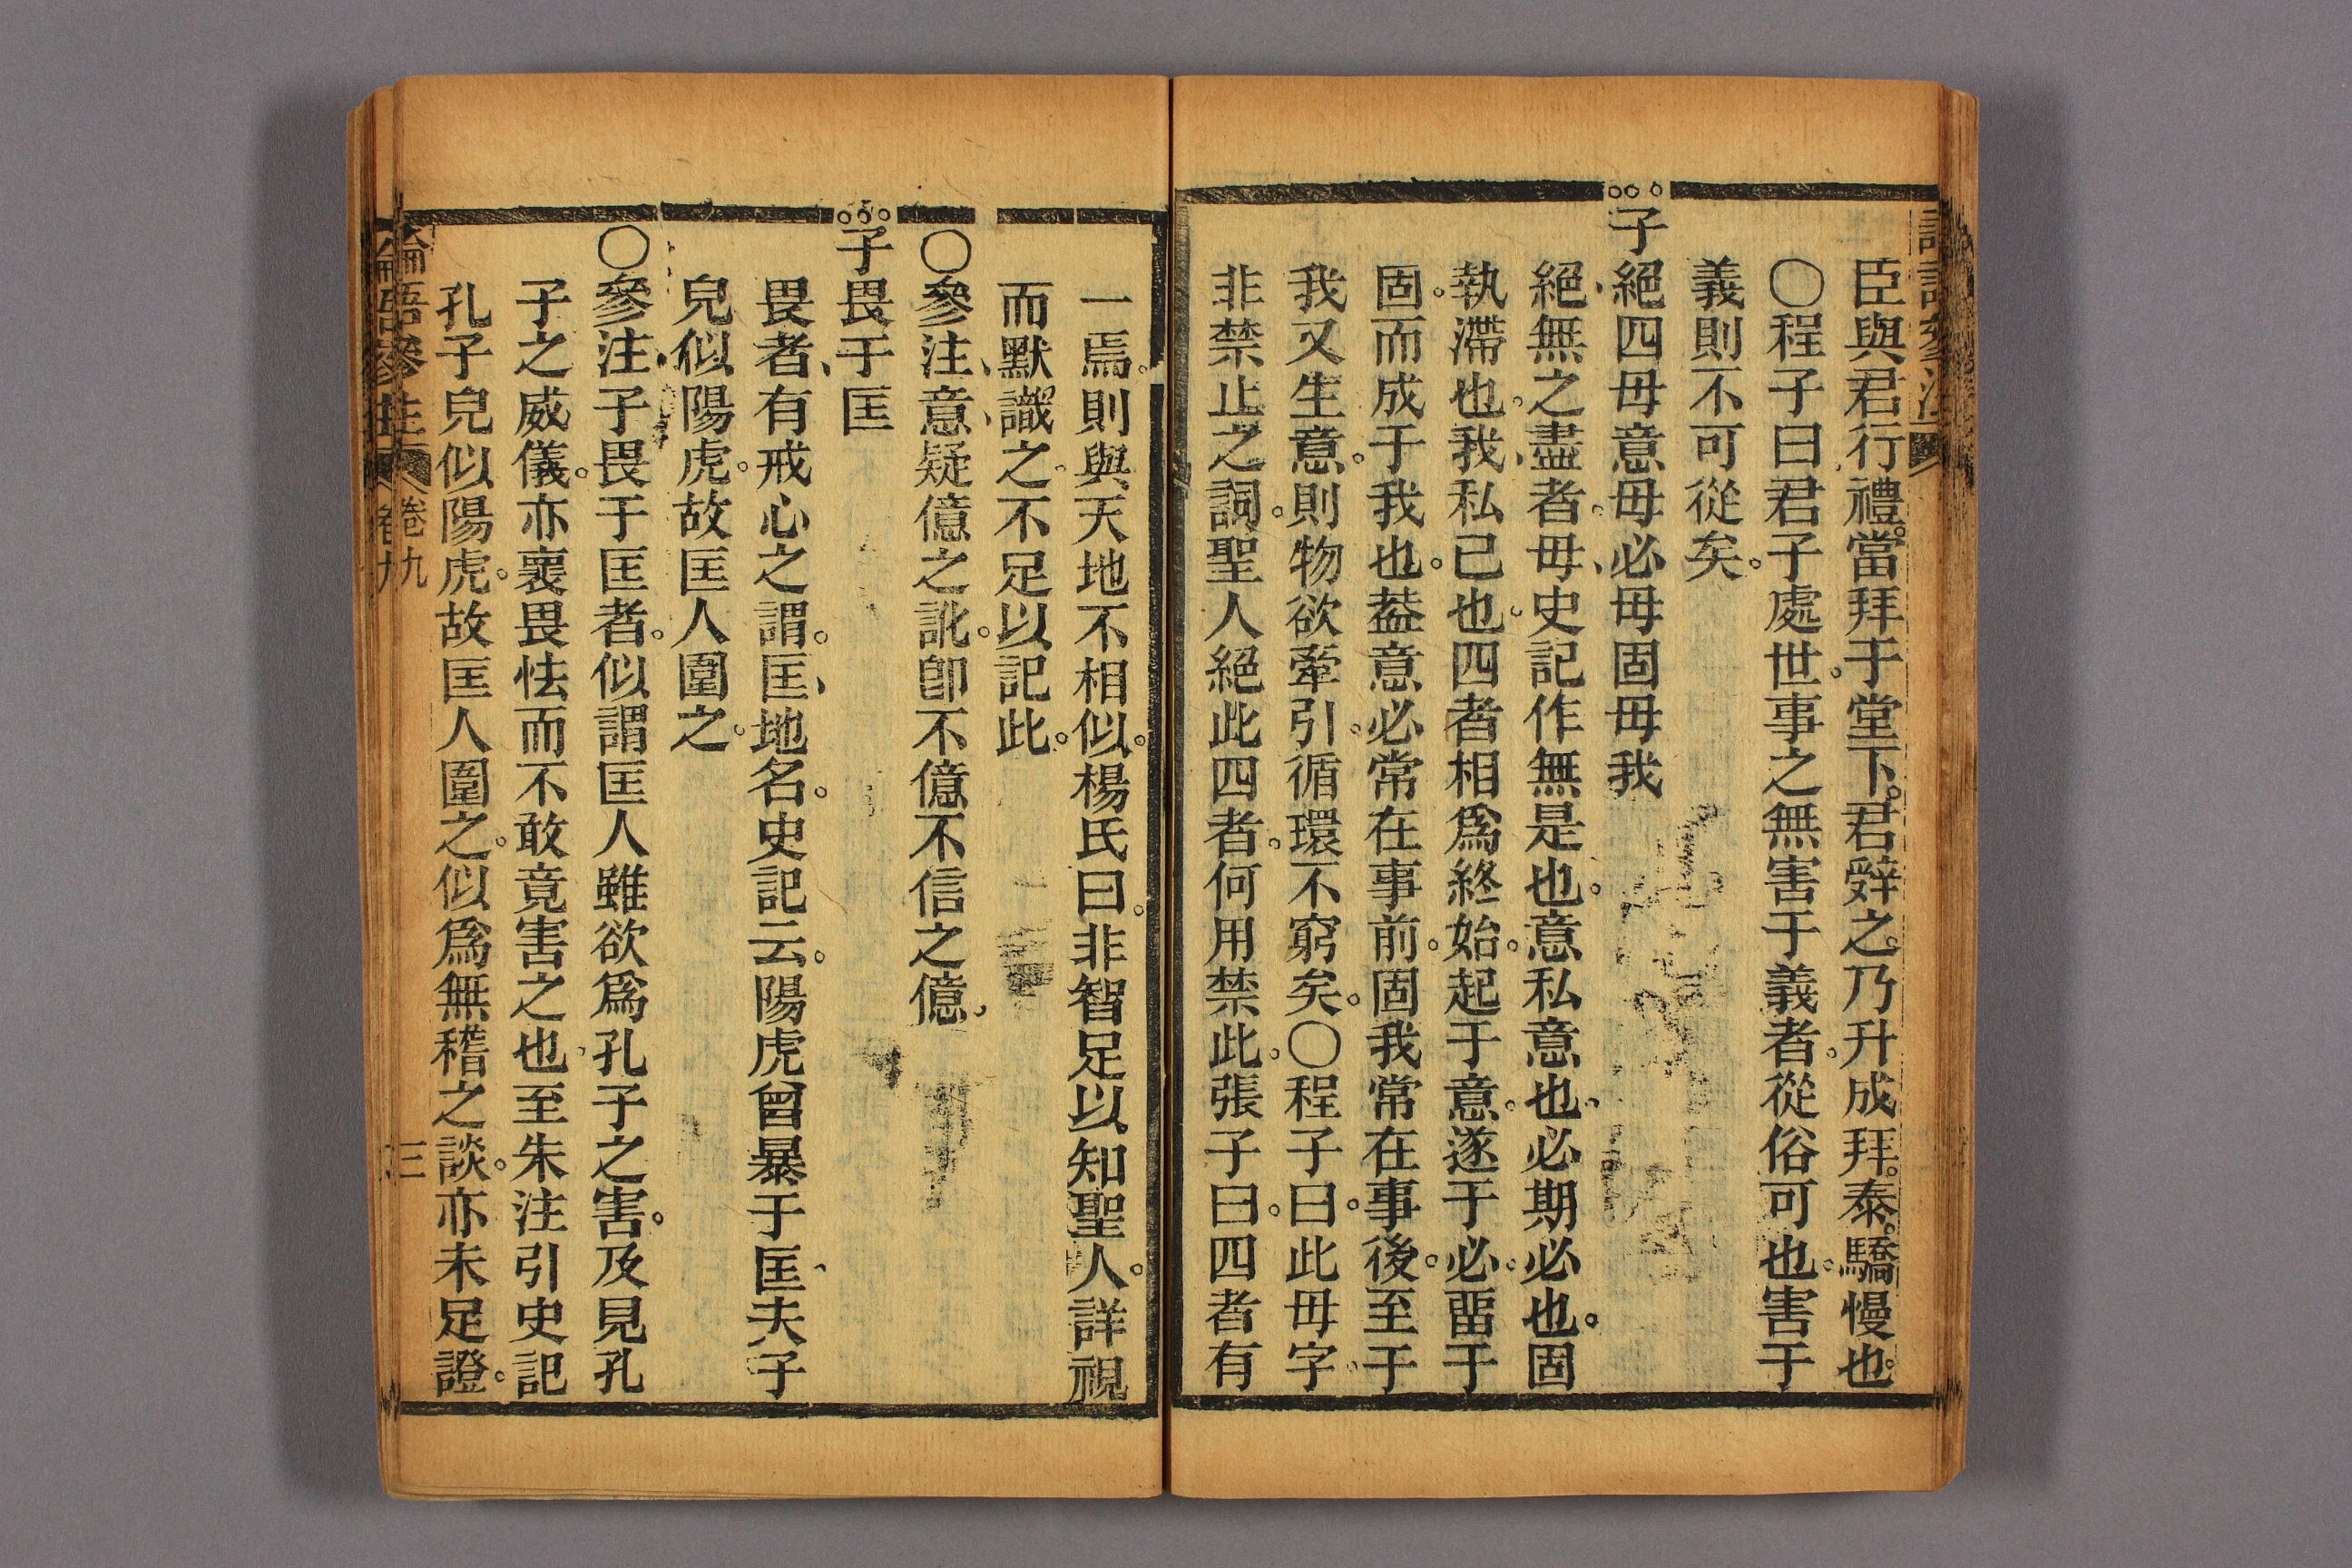 臣與君行禮。當拜于堂下。君辭之。乃升成拜。泰。驕慢也。
〇程子曰君子處世。事之無害于義者。從俗可也。害于
義則不可從矣。
子絕四毋意毋必毋固毋我
絕、無之盡者。毋、史記作無是也。意私意也、必期必也。固
執滯也。我、私己也。四者相爲終始。起于意。遂于必。畱于
固。而成于我也。葢意必常在事前。固我常在事後。至于
我又生意。則物欲牽引。循環不窮矣。〇程子曰。此毋字
非禁止之詞。聖人絕此四者。何用禁此。張子曰。四者有
一焉。則與天地不相似。楊氏曰。非智足以知聖人。詳視
而默識之。不足以記此。
〇參注、意、疑億之訛。卽不億不信之億。
子畏于匡
畏者、有戒心之謂。匡、地名。史記云。陽虎曾暴于匡、夫子
皃似陽虎。故匡人圍之。
〇參注、子畏于匡者。似謂匡人雖欲爲孔子之害。及見孔
子之威儀。亦襄畏怯而不敢竟害之也、至朱注引史記
孔子皃似陽虎。故匡人圍之。似爲無稽之談。亦未足證。
論語參注 卷九 三